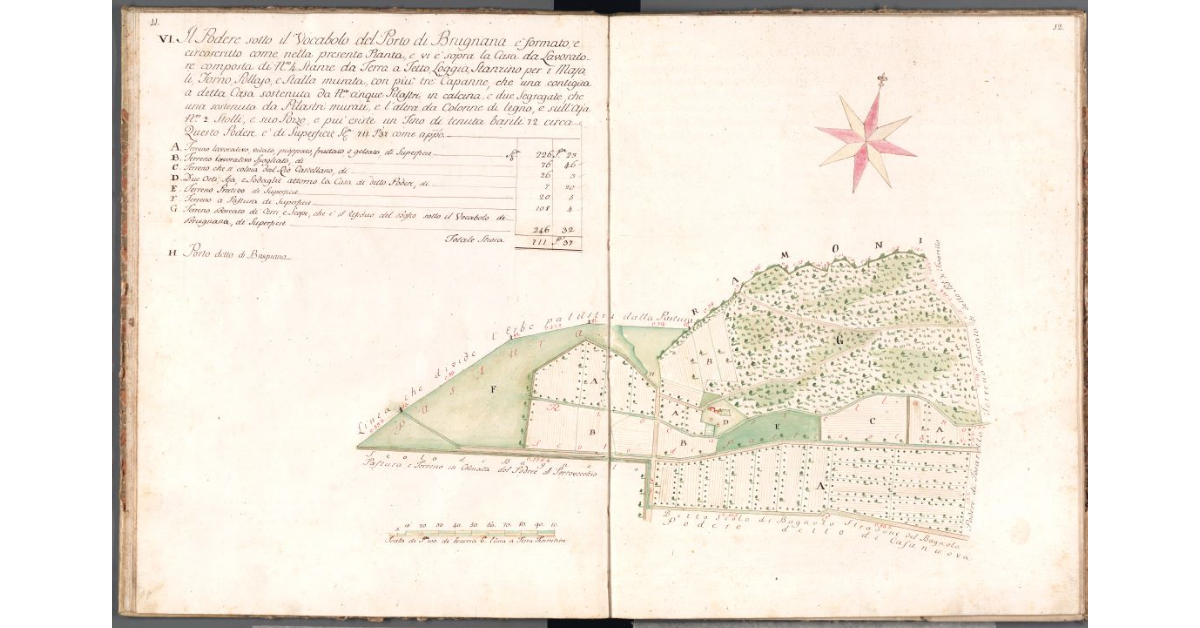 11.
VI. Il Podere sotto il Vocabolo del Porto di Brugnana è formato, e
circoscritto come nella presente Pianta, e vi è sopra la Casa da Lavorato-
re composta di N.º 4 Stanze da Terra a Tetto Loggia, Stanzino per i Maja
li, Forno, Pollajo, e Stalla murata, con più tre Capanne, che una contigua
a detta Casa sostenuta da N.º cinque Pilastri in calcina, e due Segregate, che
una sostenuta da Pilastri murati, e l'altra da Colonne di legno, e sull'Aja
N.º 2 Stolli, e suo Pozzo, e pui' esiste un Tino di tenuta barili 72 circa
Questo Podere è di Superficie 711 37 come appo.
A Terreno lavorativo, vitato, pioppato, fruttato e gelsato, di Superficie 226 23
B. Terreno lavorativo spogliato, di 76 46
C Terreno che si colma dal Rio Castellano, di 26 3
D. Due Orti, Aja, e Sodaglie attorno la Casa di detto Podere, di 7 20
E Terreno Prativo di Superficie 20 5
F Terreno a Pastura di Superficie 108 4
G Terreno boscato di Cerri e Scope, che è il residuo del bosco sotto il Vocabolo di
Brugnana, di Superficie 246 32
Totale Stiora 711 37
H Porto detto di Brugnana
12.
RAMONI
Linea che divide l'Erbe palustri dalla Pastura
Pastura
G
B
F
A
A
D
E
C
A
B
B
A
Pastura e Terreno in Colmata del Podere di Portovecchio
10 20 30 40 50 60 70 80 90
Scala di
a Terra Fiorentina
Detto Scolo di Bagnolo Stradone del Bagnolo
Podere detto di Casanuova